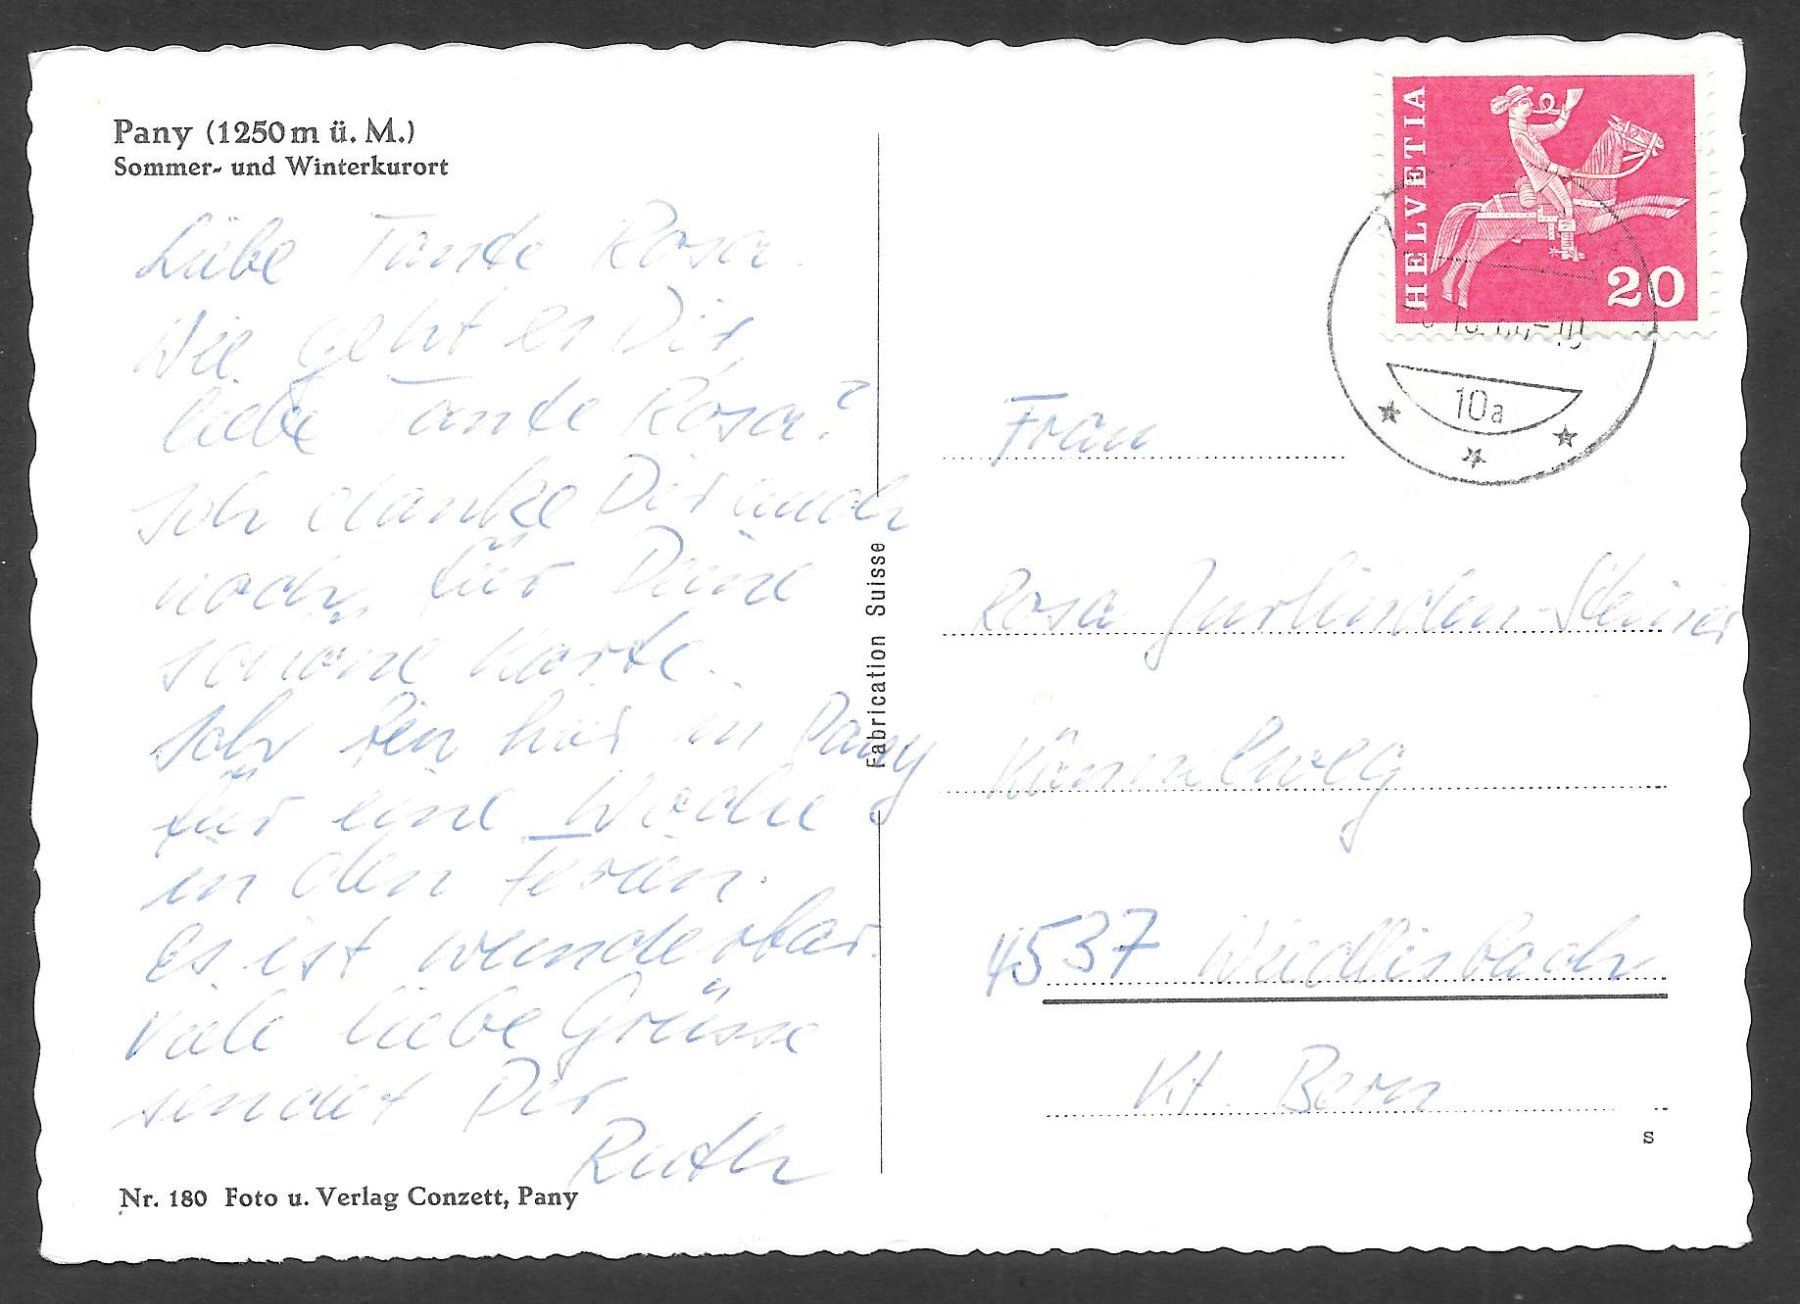 Pany (1250 m ü. M.)
Sommer- und Winterkurort
Liebe Tante Rosa.
Wie geht es Dir,
liebe Tante Rosa?
Ich danke Dir auch
noch für Deine
schöne Karte.
Ich bin hier in Pany
für eine Woche
in den Ferien.
Es ist wunderbar.
Viele liebe Grüsse
sendet Dir
Ruth
Nr. 180 Foto u. Verlag Conzett, Pany
Fabrication Suisse
HELVETIA
20
10a
Frau
Rosa Zurlinden-Steiner
Kännelweg
4537 Wiedlisbach
Kt. Bern
s